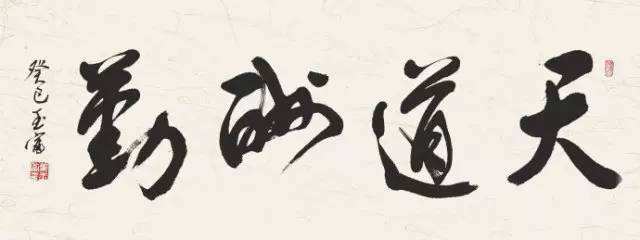 天道酬勤
癸巳玉富